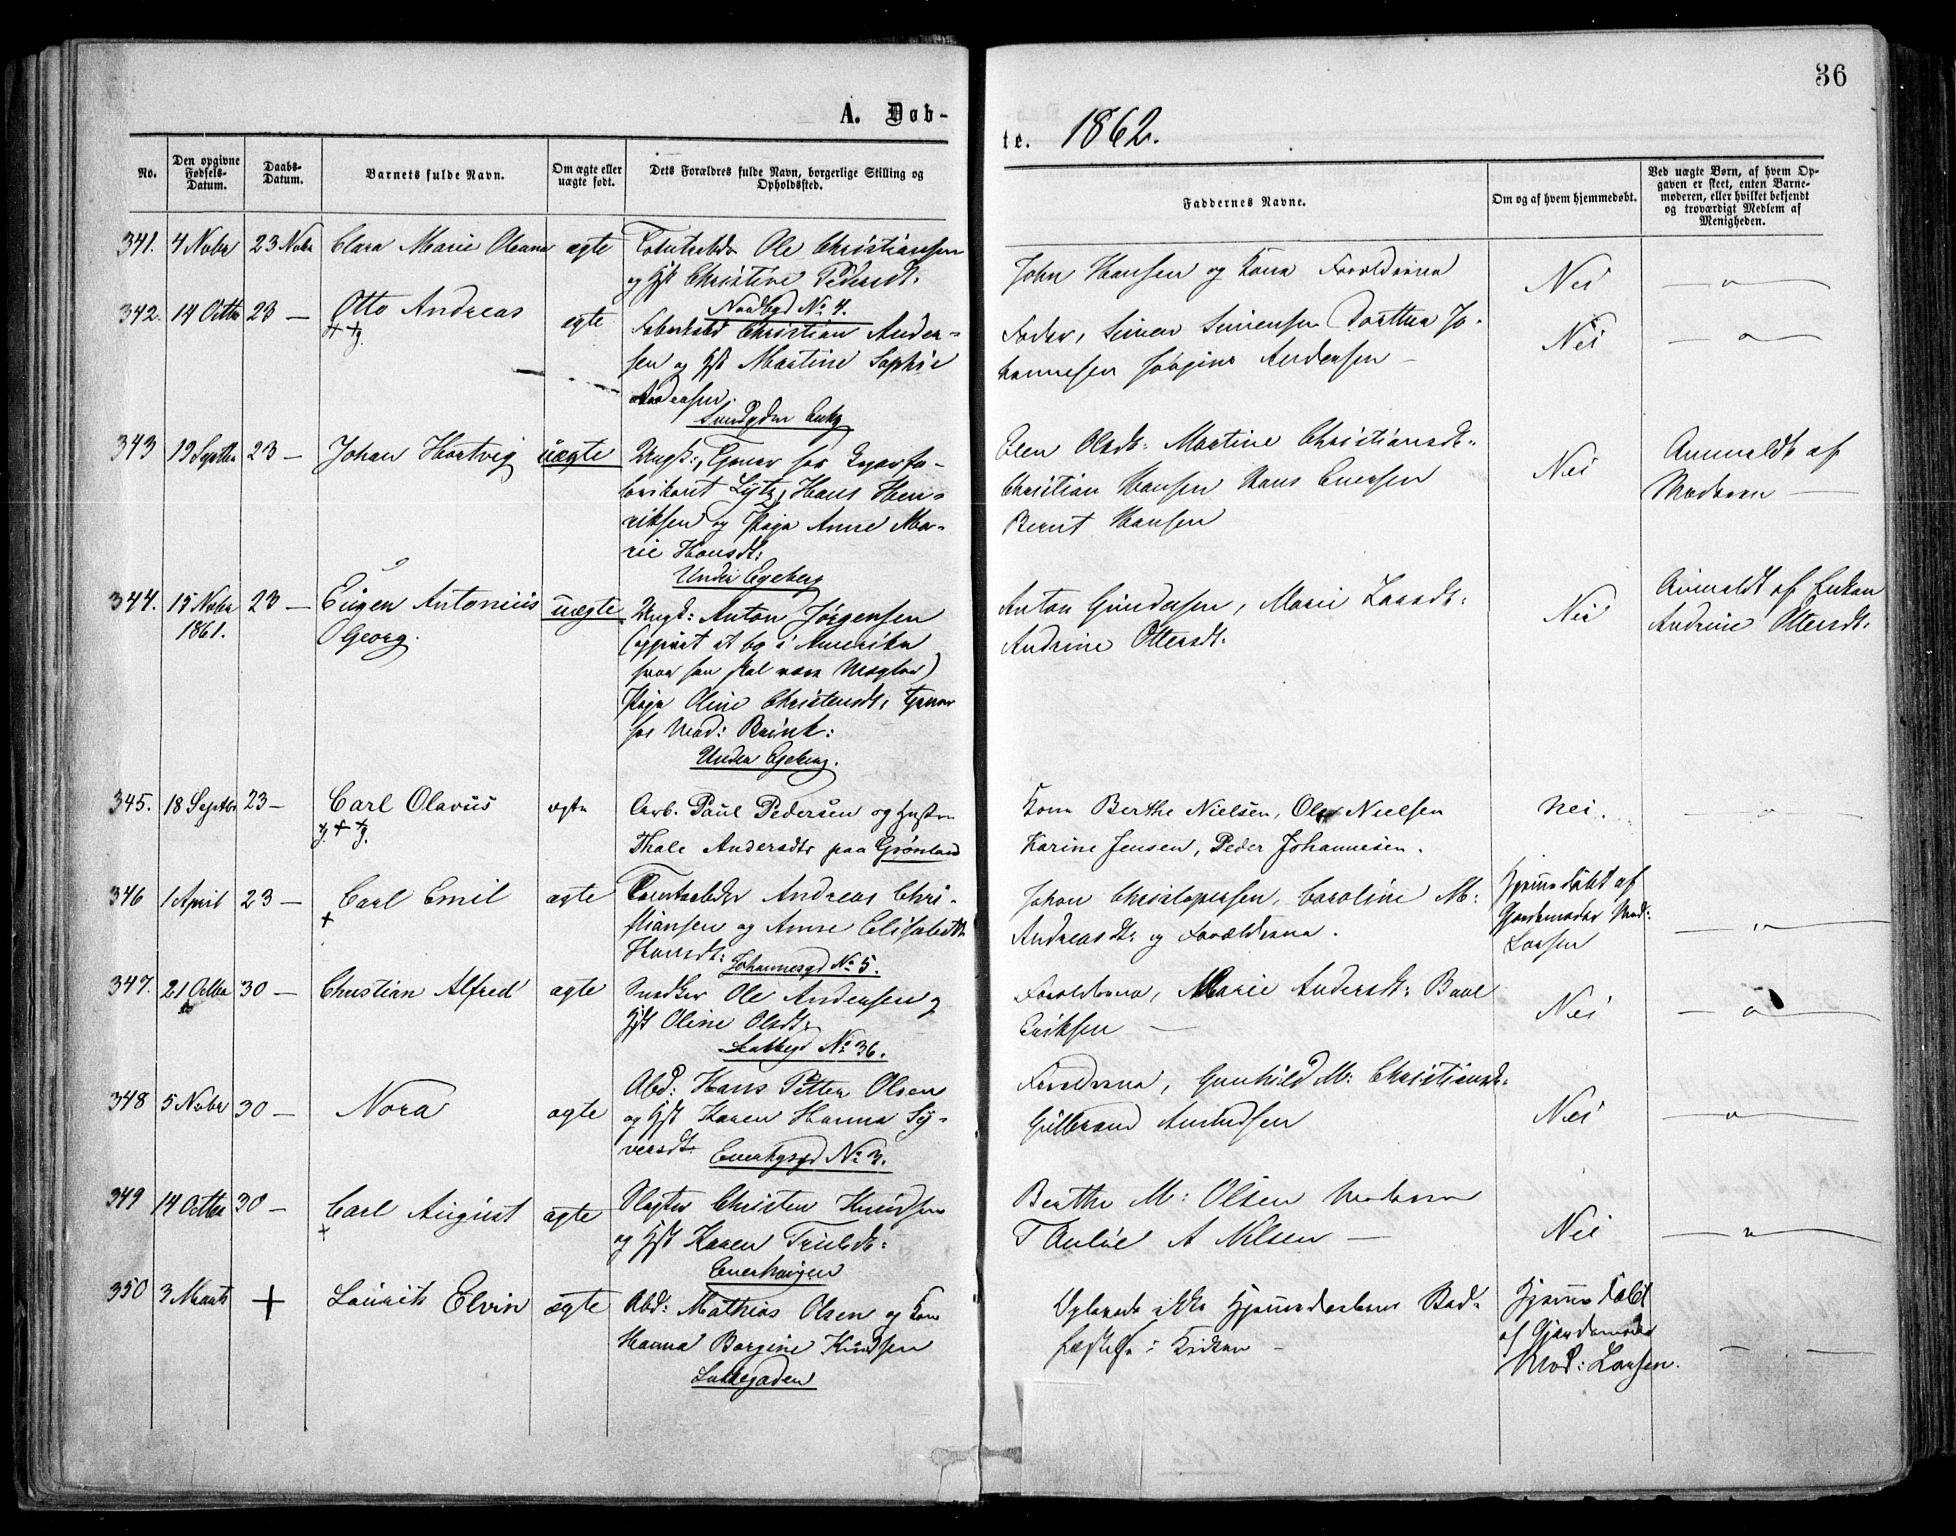 36
A. Døb-
te. 1862.
No.
Den opgivne Fødsels-Datum.
Daabs-Datum.
Barnets fulde Navn.
Om ægte eller uægte født.
Dets Forældres fulde Navn, borgerlige Stilling og Opholdssted.
Faddernes Navne.
Om og af hvem hjemmedøbt.
Ved uægte Børn, af hvem Opgaven er skeet, enten Barnemoderen, eller hvilket bekjendt og troværdigt Medlem af Menigheden.
341. 4 Novbr 23 Novbr Clara Marie Oleana ægte Ole Christiansen
og Hst Christine Pedersdt:
No 4.
John Hansen og Kona Forældrene Nei — " —
342. 14 Octbr 23 — Otto Andreas ægte Christian Ander-
sen og Hst Martine Sophie
Andersen.
Fader, Simen Simensen Dorthea Jo-
hannesen Jørgine Andersen — Nei — " —
343 19 Septbr 23 — Johan Hartvig uægte Ungk:, Hans Hen-
riksen og Pige Anne Ma-
rie Hansdt:
Under Egeberg
Elen Olsdt: Martine Christiansdt:
Christian Hansen Hans Enersen
Bernt Hansen
Nei
Anmeldt af
Moderen —
344. 15 Novbr 1861. 23 — Eugen Antonius
Georg.
uægte Ungk: Anton Jørgensen
(opgivet at bo i Amerika
hvor han skal være Mægler)
Pige Oline Christensdt:
hos Mad: Brink:
Under Egeberg.
Anton Gundersen, Marie Larsdt:
Andrine Ottersdt:
Nei
Anmeldt af Enken
Andrine Ottersdt:
345. 18 Septbr 23 — Carl Olavus ægte Arb. Paul Pedersen og Hustru
Thale Andersdtr paa Grønland
Kone Berthe Nielsen, Ole Nielsen
Karine Jensen, Peder Johannesen.
Nei. — " —
346 1 April 23 — Carl Emil ægte Andreas Chri-
stiansen og Anne Elisabeth
Hansdt: Johannesgd No 5.
Johan Christophersen, Caroline M:
Andreasdt: og Forældrene.
Hjemmedøbt af
Gjordemoder Mad:
Larsen
— " —
347. 21 Octbr 30 — Christian Alfred ægte Snedker Ole Andersen og
Hst Oline Olsdt:
Lakkegd No 36.
Forældrene, Marie Andersdt: Paul
Eriksen —
Nei — " —
348 5 Novbr 30 — Nora ægte Abd: Hans Petter Olsen
og Hst Karen Hanna Sy-
versdt. No 3.
Forældrene, Gunhild M: Christiansdt:
Gulbrand Amundsen
Nei — " —
349 14 Octbr 30 — Carl August ægte Slagter Christen Knudsen
og Hst Karen Trulsdt:
Enerhougen
Berthe M: Olsen Moderen
A Nilsen —
Nei — " —
350 3 Marts + Laurits Elvin ægte Abd: Mathias Olsen og Kone
Hanna Borgine Knudsen
Lakkegaden
ikke Hjemmedaabens Bed-
i Kirken —
Hjemmedøbt
af Gjordemoder
Mad: Larsen.
— " —